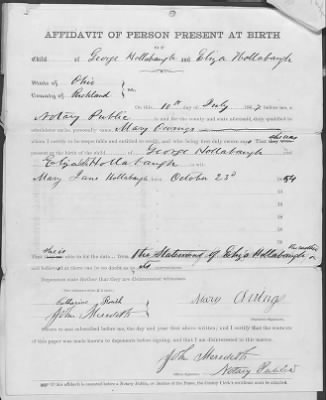 AFFIDAVIT OF PERSON PRESENT AT BIRTH
OF
Child of George Hollabaugh and Eliza Hollabaugh
State of Ohio
County of Richland
On this 10th day of July before me, a
Notary Public in and for the county and state aforesaid, duly qualified to
administer oaths, personally came Mary
whom I certify to be respectable and entitled to credit, and who being first duly sworn
she was
present at the birth of the child of George Hollabaugh and
Hollabaugh to wit:
Mary Jane Hollabaugh born October 23d 1854
18
18
18
18
18
she is able to fix the date from the Statement of Eliza Hollabaugh the mother
and believe that there can be no doubt as to
Deponents state further that they are disinterested witnesses.
Catharine
John Meredith
Mary
Sworn to and subscribed before me, the day and year first above written; and I certify that the contents
of this paper were made known to deponents before signing, and that I am disinterested in the matter.
John Meredith
Notary Public
If this affidavit is executed before a Notary Public, or Justice of the Peace, the County Clerk's certificate must be attached.